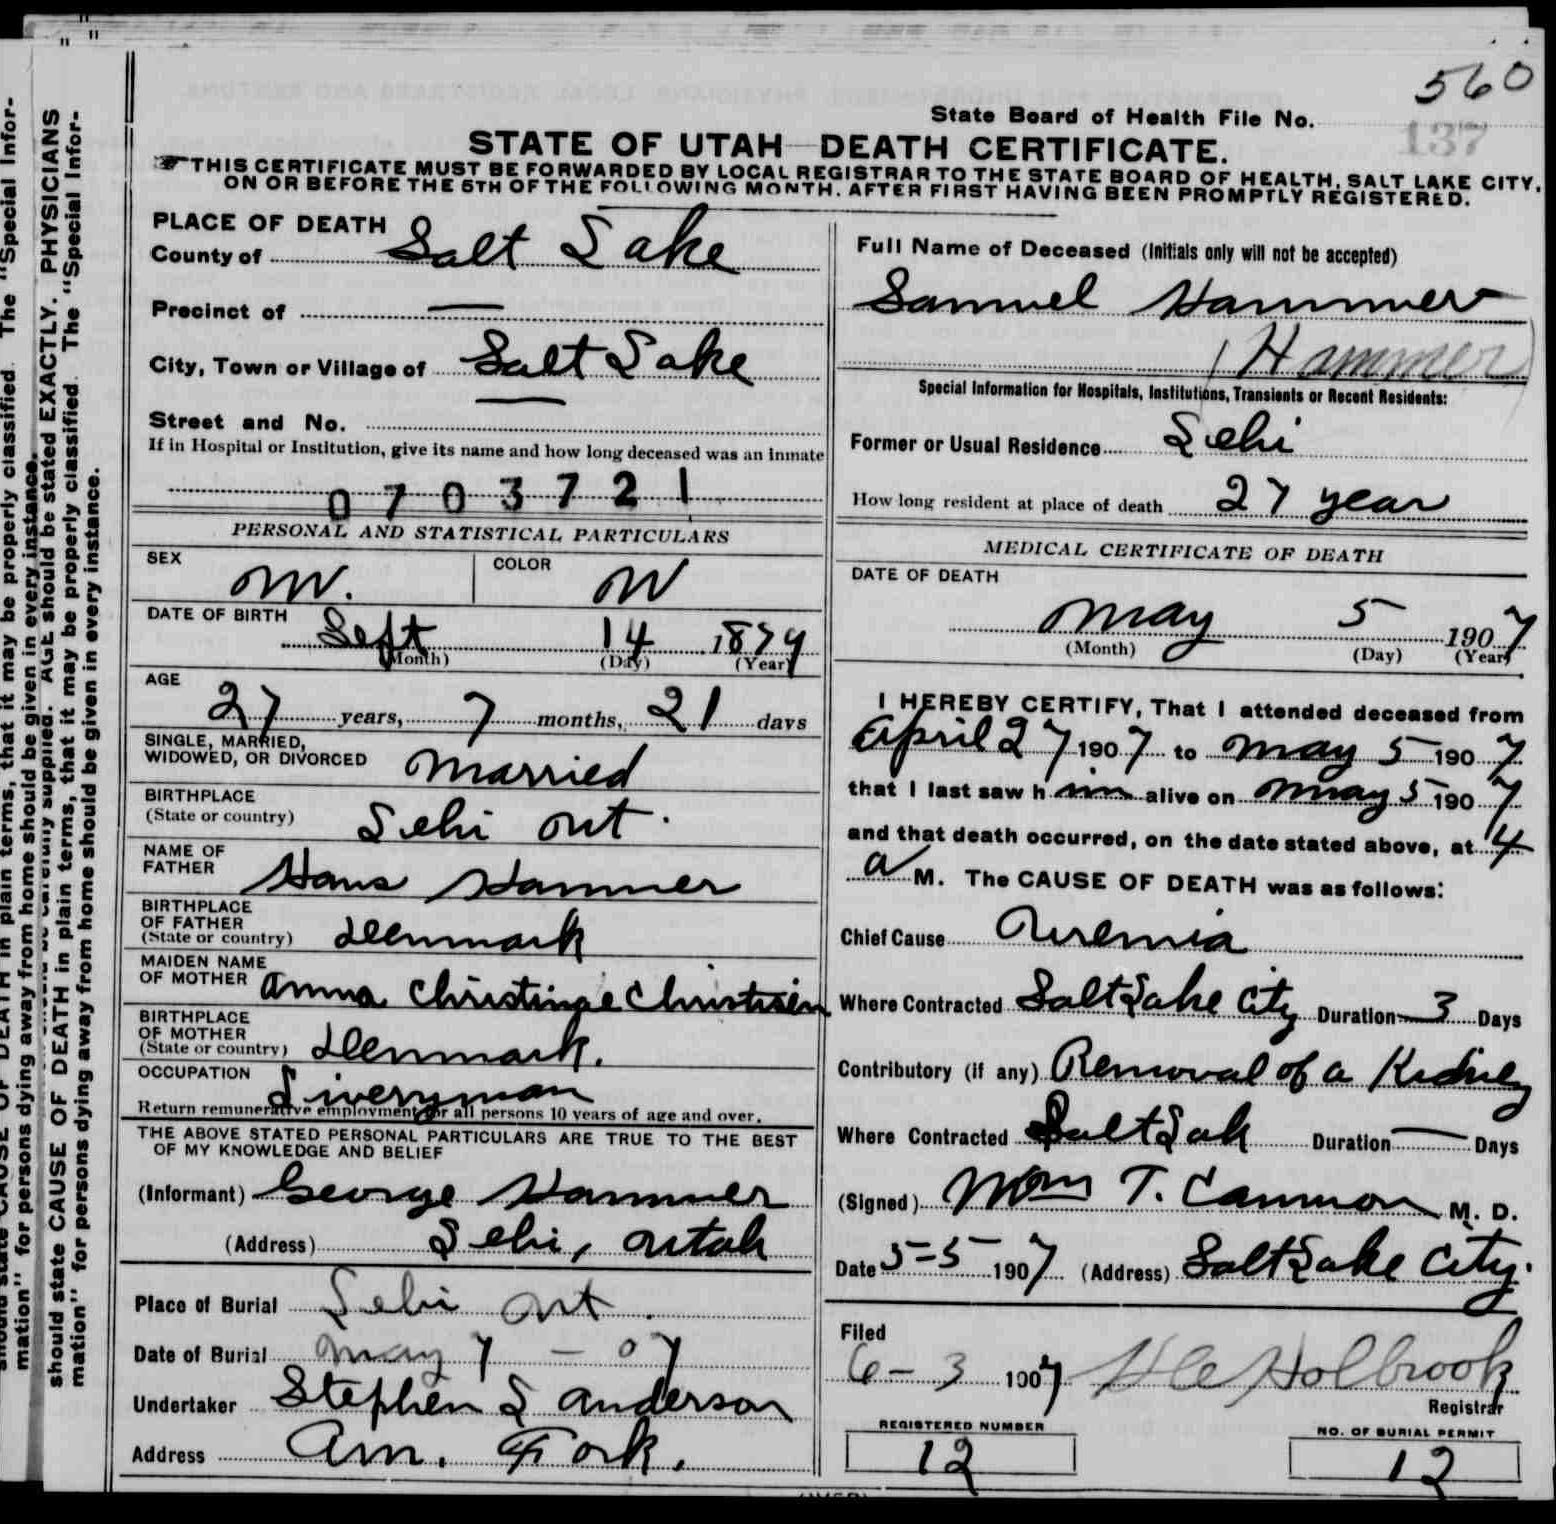 560
State Board of Health File No.
137
STATE OF UTAH—DEATH CERTIFICATE.
☞THIS CERTIFICATE MUST BE FORWARDED BY LOCAL REGISTRAR TO THE STATE BOARD OF HEALTH, SALT LAKE CITY,
ON OR BEFORE THE 5TH OF THE FOLLOWING MONTH, AFTER FIRST HAVING BEEN PROMPTLY REGISTERED.
PLACE OF DEATH
County of Salt Lake
Precinct of —
City, Town or Village of Salt Lake
Street and No. —
If in Hospital or Institution, give its name and how long deceased was an inmate
0703721
PERSONAL AND STATISTICAL PARTICULARS
SEX M. COLOR W
DATE OF BIRTH
Sept 14 1879
(Month) (Day) (Year)
AGE
27 years, 7 months, 21 days
SINGLE, MARRIED,
WIDOWED, OR DIVORCED Married
BIRTHPLACE
(State or country) Lehi Ut.
NAME OF
FATHER Hans Hammer
BIRTHPLACE
OF FATHER
(State or country) Denmark
MAIDEN NAME
OF MOTHER Anna Christinae Christisen
BIRTHPLACE
OF MOTHER
(State or country) Denmark.
OCCUPATION Liveryman
Return remunerative employment for all persons 10 years of age and over.
THE ABOVE STATED PERSONAL PARTICULARS ARE TRUE TO THE BEST
OF MY KNOWLEDGE AND BELIEF
(Informant) George Hammer
(Address) Lehi, Utah
Place of Burial Lehi Ut.
Date of Burial May 7 – 07
Undertaker Stephen L Anderson
Address Am. Fork.
Full Name of Deceased (Initials only will not be accepted)
Samuel Hammer
(Hammer)
Special Information for Hospitals, Institutions, Transients or Recent Residents:
Former or Usual Residence Lehi
How long resident at place of death 27 year
MEDICAL CERTIFICATE OF DEATH
DATE OF DEATH
May 5 1907
(Month) (Day) (Year)
I HEREBY CERTIFY, That I attended deceased from
April 27 1907 to May 5 1907
that I last saw him alive on May 5 1907
and that death occurred, on the date stated above, at 4
a M. The CAUSE OF DEATH was as follows:
Chief Cause Uremia
Where Contracted Salt Lake City Duration 3 Days
Contributory (if any) Removal of a Kidney
Where Contracted Salt Lak Duration — Days
(Signed) T. Cannon M. D.
Date 5-5 1907 (Address) Salt Lake City.
Filed
6-3 1907 Holbrook
Registrar
REGISTERED NUMBER
12
NO. OF BURIAL PERMIT
12
should state CAUSE OF DEATH in plain terms, that it may be properly classified. The "Special Infor-
mation" for persons dying away from home should be given in every instance.
AGE should be stated EXACTLY. PHYSICIANS
should state CAUSE OF DEATH in plain terms, that it may be properly classified. The "Special Infor-
mation" for persons dying away from home should be given in every instance.